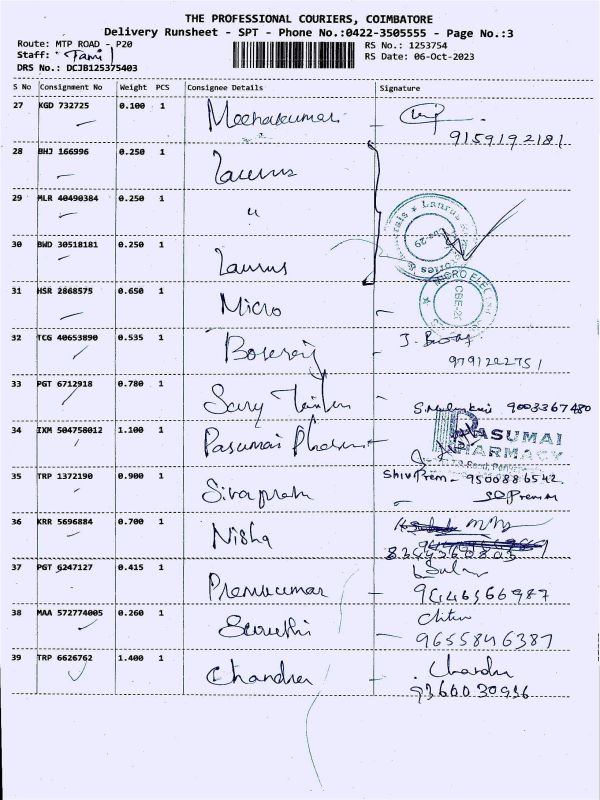 THE PROFESSIONAL COURIERS, COIMBATORE
Delivery Runsheet - SPT - Phone No.:0422-3505555 - Page No.:3
Route: MTP ROAD - P20
RS No.: 1253754
Staff: Tamil
RS Date: 06-Oct-2023
DRS No.: DCJB125375403
S No Consignment No Weight PCS Consignee Details Signature
27 KGD 732725 0.100 1 Meenakumari
9159192181
28 BHJ 166996 0.250 1 Laurus
29 MLR 40490384 0.250 1 "
30 BWD 30518181 0.250 1 Laurus
31 HSR 2868575 0.650 1 Micro
MICRO ELEC
CBE-29
32 TCG 40653890 0.535 1
9791222751
33 PGT 6712918 0.780 1
9003367480
34 IXM 504758012 1.100 1 Pasumai
PASUMAI
PHARMACY
35 TRP 1372190 0.900 1 Sivaprem
Shivprem - 9500886542
36 KRR 5696884 0.700 1 Nisha
37 PGT 6247127 0.415 1 Premkumar
38 MAA 572774005 0.260 1 Suruthi
9655846387
39 TRP 6626762 1.400 1 Chandra
Chandra